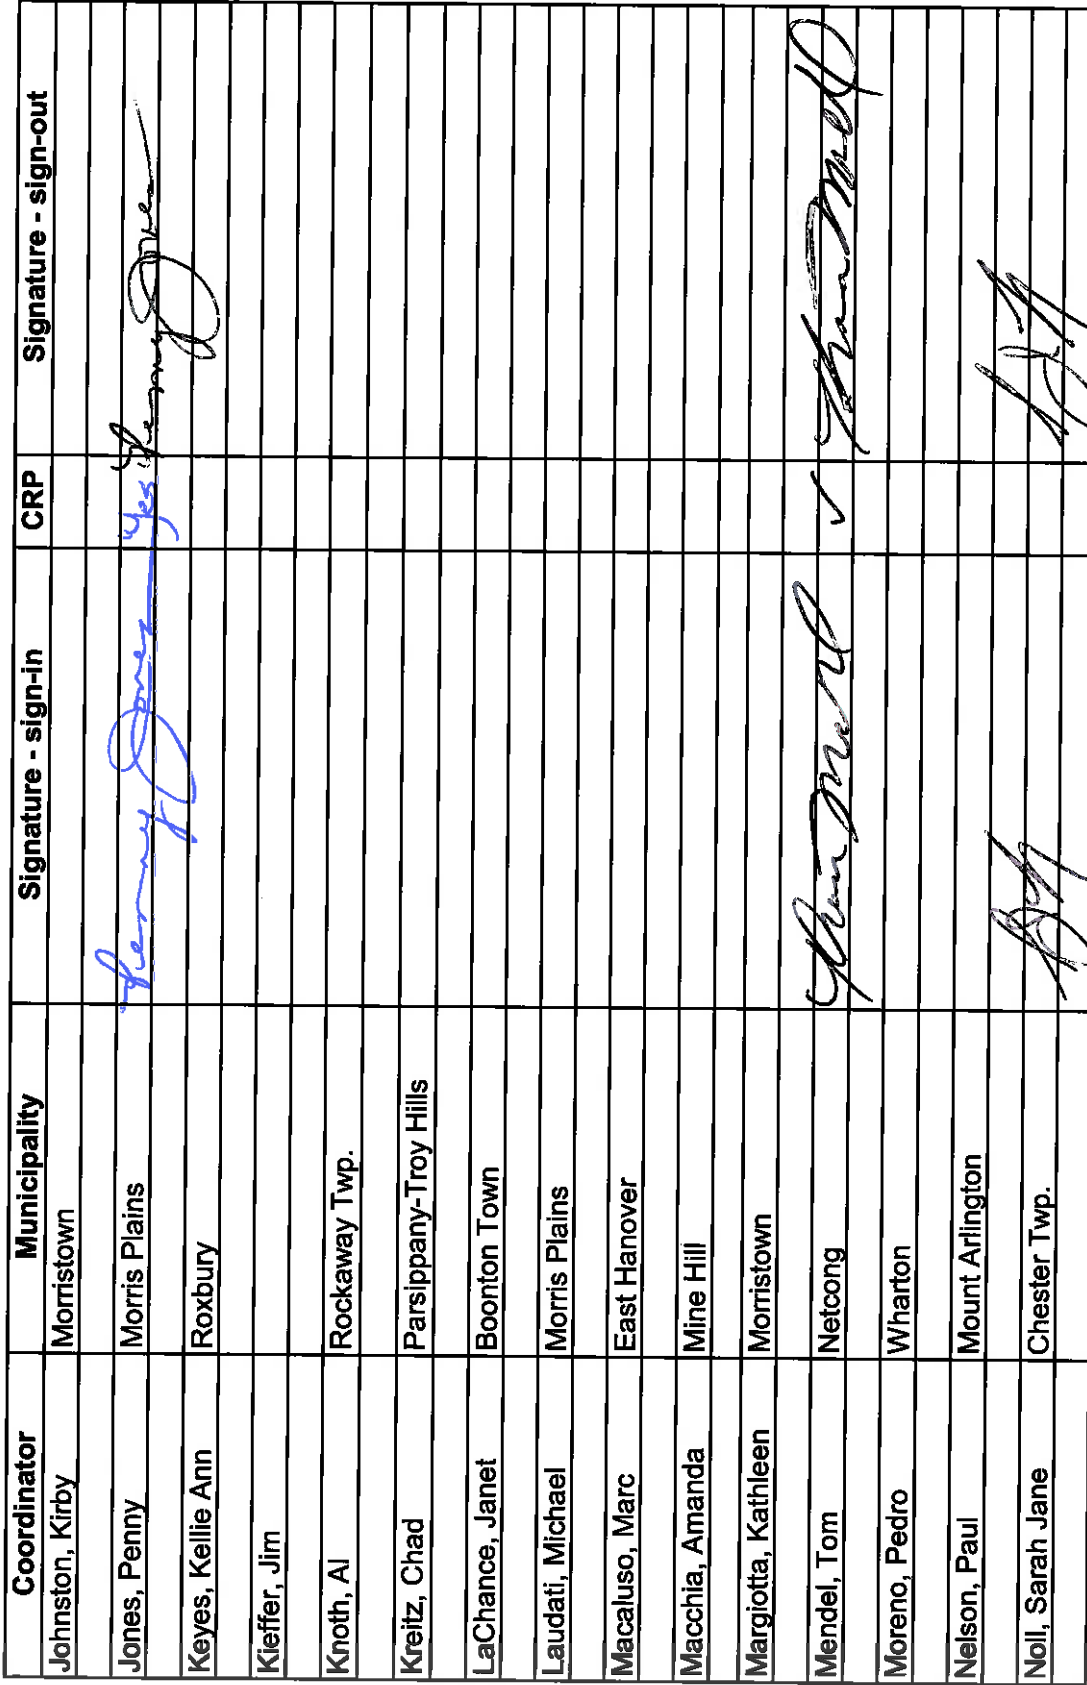 Coordinator Municipality Signature - sign-in CRP Signature - sign-out
Johnston, Kirby Morristown
Jones, Penny Morris Plains Penny Jones Yes Penny Jones
Keyes, Kellie Ann Roxbury
Kieffer, Jim
Knoth, Al Rockaway Twp.
Kreitz, Chad Parsippany-Troy Hills
LaChance, Janet Boonton Town
Laudati, Michael Morris Plains
Macaluso, Marc East Hanover
Macchia, Amanda Mine Hill
Margiotta, Kathleen Morristown
Mendel, Tom Netcong ✓
Moreno, Pedro Wharton
Nelson, Paul Mount Arlington
Noll, Sarah Jane Chester Twp.